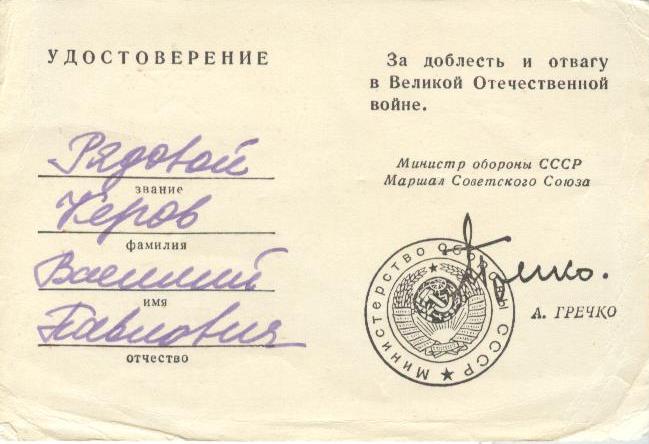 УДОСТОВЕРЕНИЕ
Рядовой
звание
Керов
фамилия
Василий
имя
Павлович
отчество
За доблесть и отвагу
в Великой Отечественной
войне.
Министр обороны СССР
Маршал Советского Союза
Министерство Обороны СССР
Гречко.
А. ГРЕЧКО